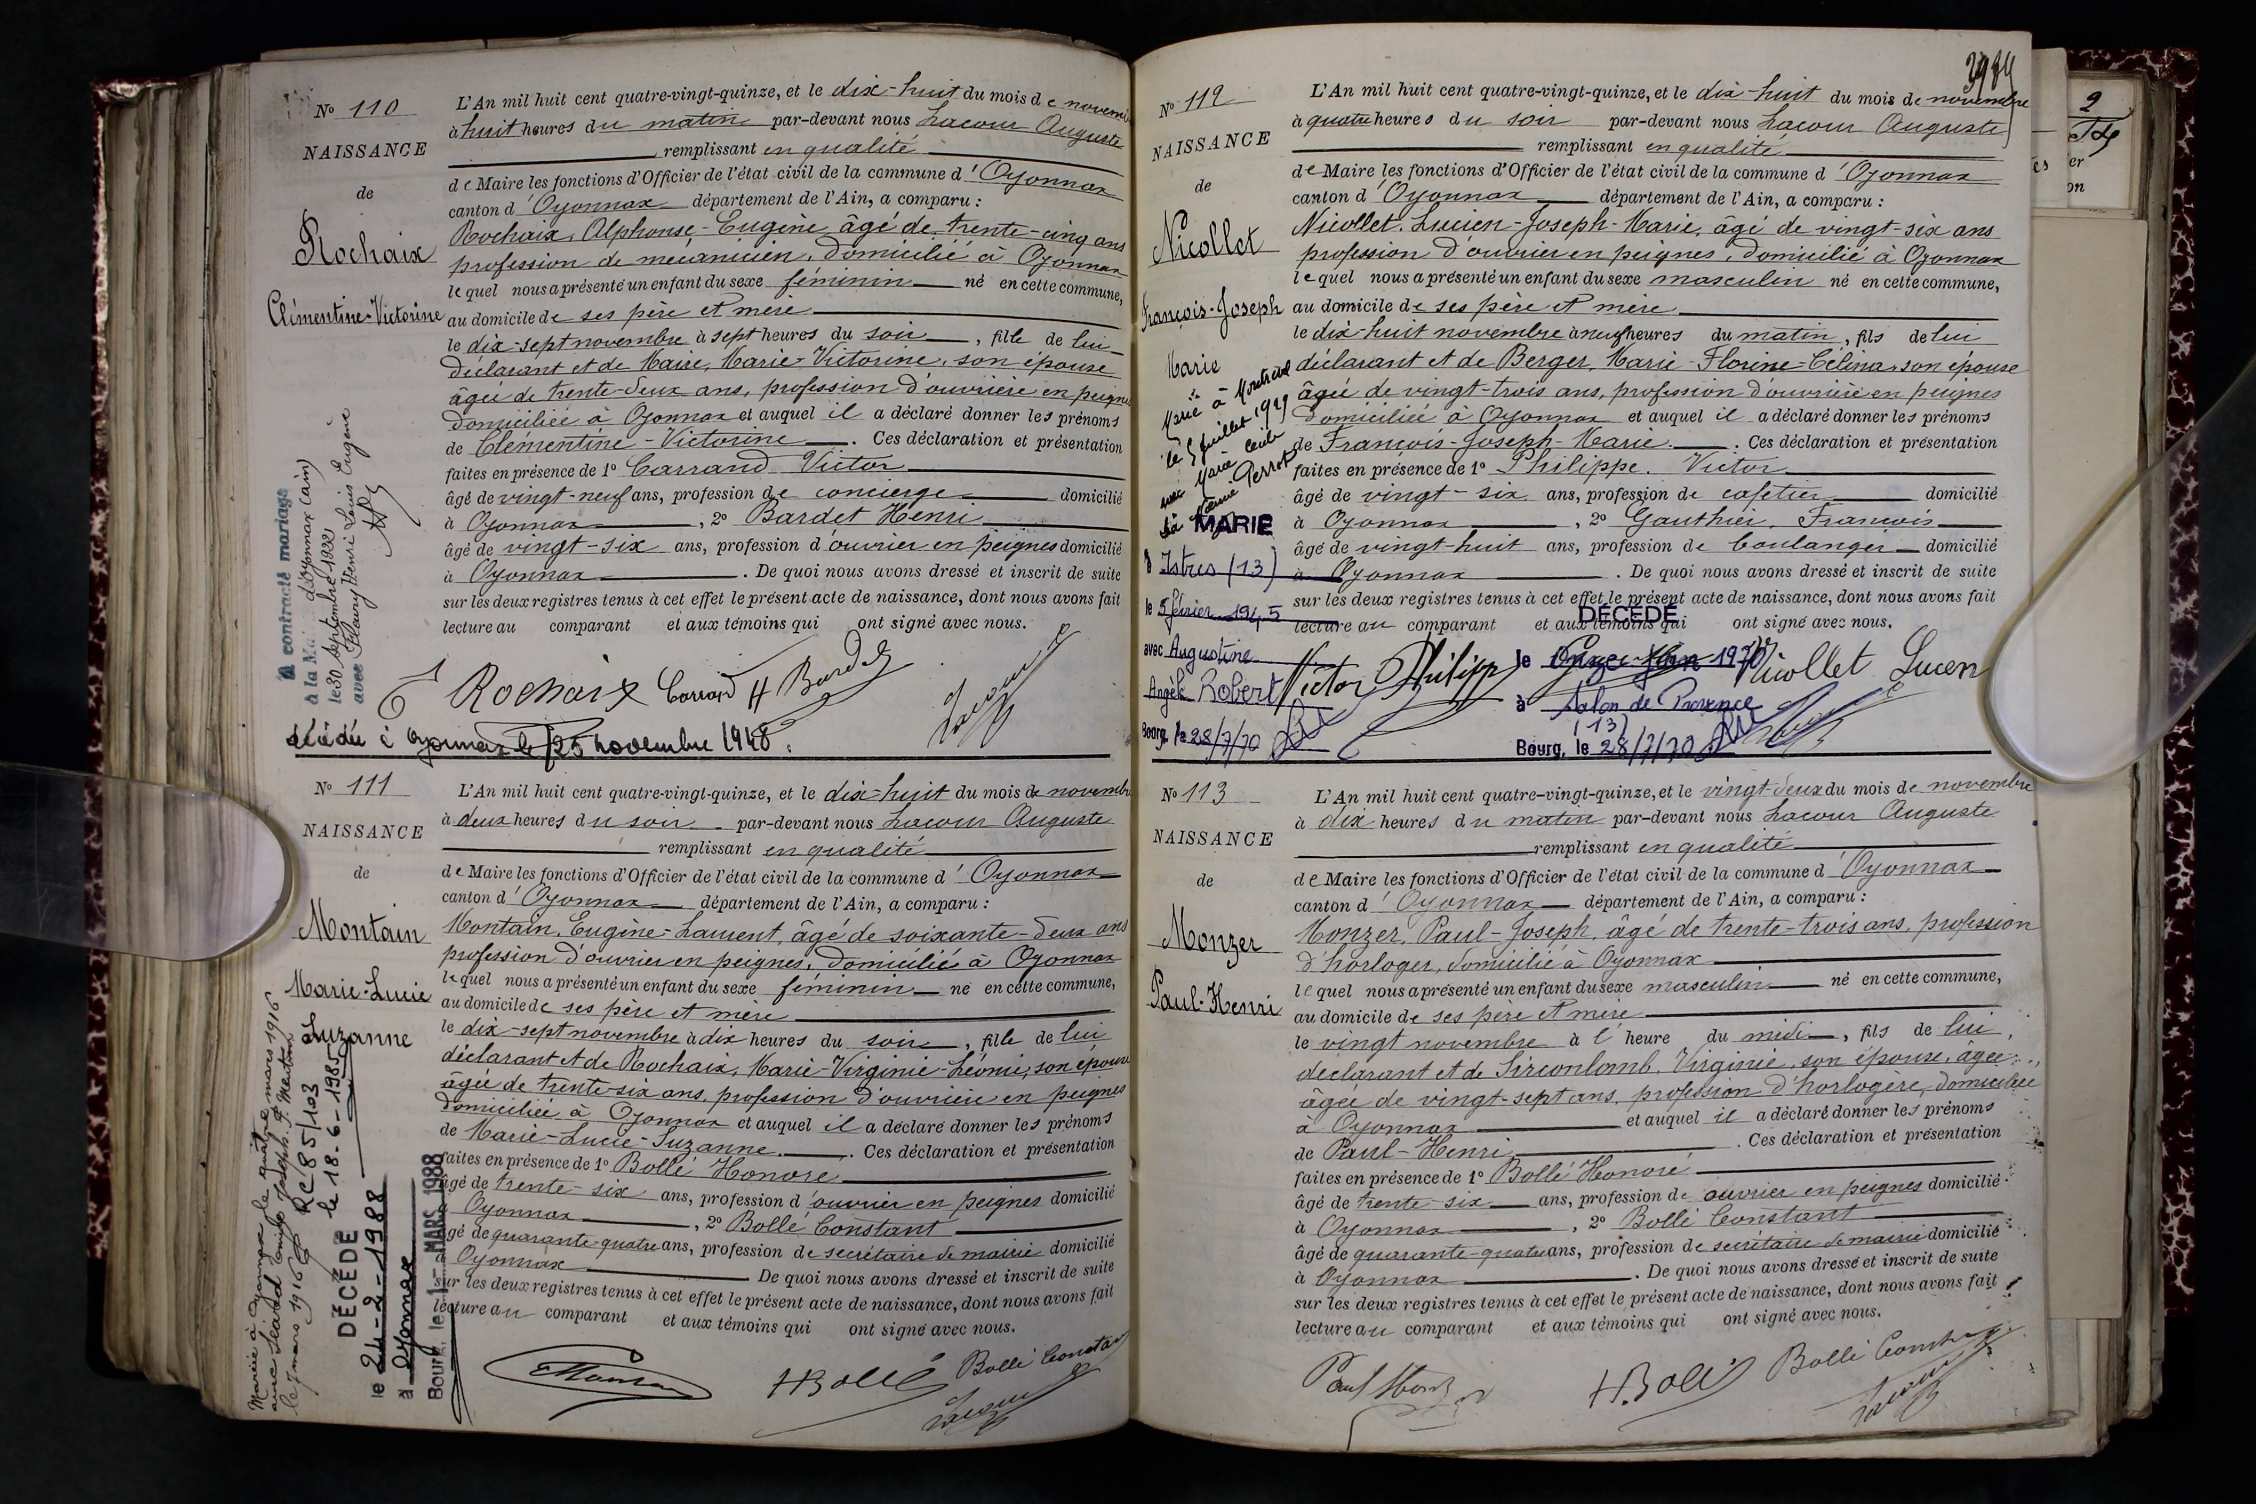 Nº 110
NAISSANCE
de
Rochaix
Clémentine-Victorine
L'An mil huit cent quatre-vingt-quinze, et le dix-huit du mois de novembre
à huit heures du matin par-devant nous Lacour Auguste
remplissant en qualité
de Maire les fonctions d'Officier de l'état civil de la commune d'Oyonnax
canton d'Oyonnax département de l'Ain, a comparu :
Rochaix, Alphonse-Eugène, âgé de trente-cinq ans
profession de mécanicien, domicilié à Oyonnax
lequel nous a présenté un enfant du sexe féminin né en cette commune,
au domicile de ses père et mère
le dix-sept novembre à sept heures du soir, fille de lui
déclarant et de Maire, Marie-Victorine, son épouse
âgée de trente-deux ans, profession d'ouvrière en peignes
domiciliée à Oyonnax et auquel il a déclaré donner les prénoms
de Clémentine-Victorine. Ces déclaration et présentation
faites en présence de 1º Carrand Victor
âgé de vingt-neuf ans, profession de concierge domicilié
à Oyonnax, 2º Bardet Henri
âgé de vingt-six ans, profession d'ouvrier en peignes domicilié
à Oyonnax. De quoi nous avons dressé et inscrit de suite
sur les deux registres tenus à cet effet le présent acte de naissance, dont nous avons fait
lecture au comparant et aux témoins qui ont signé avec nous.
A contracté mariage
d'Oyonnax (ain)
le 30 septembre 1922
avec Fleury Henri Louis Eugène
Rochaix Carrand H Bardet
Lacour
décédée à Oyonnax le 25 novembre 1948.
Nº 111
NAISSANCE
de
Montain
Marie-Lucie
Suzanne
L'An mil huit cent quatre-vingt-quinze, et le dix-huit du mois de novembre
à deux heures du soir par-devant nous Lacour Auguste
remplissant en qualité
de Maire les fonctions d'Officier de l'état civil de la commune d'Oyonnax
canton d'Oyonnax département de l'Ain, a comparu :
Montain, Eugène-Laurent, âgé de soixante-deux ans
profession d'ouvrier en peignes, domicilié à Oyonnax
lequel nous a présenté un enfant du sexe féminin né en cette commune,
au domicile de ses père et mère
le dix-sept novembre à dix heures du soir, fille de lui
déclarant et de Rochaix, Marie-Virginie-Léonie, son épouse
âgée de trente-six ans, profession d'ouvrière en peignes
domiciliée à Oyonnax et auquel il a déclaré donner les prénoms
de Marie-Lucie-Suzanne. Ces déclaration et présentation
faites en présence de 1º Bollé Honoré
âgé de trente-six ans, profession d'ouvrier en peignes domicilié
Oyonnax, 2º Bollé Constant
âgé de quarante-quatre ans, profession de secrétaire de mairie domicilié
à Oyonnax De quoi nous avons dressé et inscrit de suite
sur les deux registres tenus à cet effet le présent acte de naissance, dont nous avons fait
lecture au comparant et aux témoins qui ont signé avec nous.
Mariée à Oyonnax le quatre mars 1916
le 7 mars 1916
RC 85/103
le 18-6-1985
DÉCÉDÉ
le 24-2-1988
à Oyonnax
Bourg, le 1- MARS 1988
HBollé Bollé Constant
Lacour
3984
Nº 112
NAISSANCE
de
Nicollet
François-Joseph
Marie
L'An mil huit cent quatre-vingt-quinze, et le dix-huit du mois de novembre
à quatre heures du soir par-devant nous Lacour Auguste
remplissant en qualité
de Maire les fonctions d'Officier de l'état civil de la commune d'Oyonnax
canton d'Oyonnax département de l'Ain, a comparu :
Nicollet, Lucien-Joseph-Marie, âgé de vingt-six ans
profession d'ouvrier en peignes, domicilié à Oyonnax
lequel nous a présenté un enfant du sexe masculin né en cette commune,
au domicile de ses père et mère
le dix-huit novembre à neuf heures du matin, fils de lui
déclarant et de Berger, Marie-Florine-Célina, son épouse
âgée de vingt-trois ans, profession d'ouvrière en peignes
domiciliée à Oyonnax et auquel il a déclaré donner les prénoms
de François-Joseph-Marie. Ces déclaration et présentation
faites en présence de 1º Philippe, Victor
âgé de vingt-six ans, profession de cafetier domicilié
à Oyonnax, 2º Gauthier, François
âgé de vingt-huit ans, profession de boulanger domicilié
à Oyonnax. De quoi nous avons dressé et inscrit de suite
sur les deux registres tenus à cet effet le présent acte de naissance, dont nous avons fait
lecture au comparant et aux témoins qui ont signé avec nous.
Marié à Montréal
le 5 juillet 1929
Perret
MARIE
d Istres (13)
le 5 février 1945
avec Augustine
Angèle Robert
Bourg, le 28/7/70
DÉCÉDÉ
le Onze Juin 1970
à Salon de Provence
(13)
Bourg, le 28/7/70
Victor Philippe Nicollet Lucien
Nº 113
NAISSANCE
de
Monzer
Paul-Henri
L'An mil huit cent quatre-vingt-quinze, et le vingt-deux du mois de novembre
à dix heures du matin par-devant nous Lacour Auguste
remplissant en qualité
de Maire les fonctions d'Officier de l'état civil de la commune d'Oyonnax
canton d'Oyonnax département de l'Ain, a comparu :
Monzer, Paul-Joseph, âgé de trente-trois ans, profession
d'horloger, domicilié à Oyonnax
lequel nous a présenté un enfant du sexe masculin né en cette commune,
au domicile de ses père et mère
le vingt novembre à l'heure du midi, fils de lui,
déclarant et de Sirconlomb, Virginie, son épouse, âgée
âgée de vingt-sept ans, profession d'horlogère, domiciliée
à Oyonnax et auquel il a déclaré donner les prénoms
de Paul-Henri. Ces déclaration et présentation
faites en présence de 1º Bollé Honoré
âgé de trente-six ans, profession de ouvrier en peignes domicilié
à Oyonnax, 2º Bollé Constant
âgé de quarante-quatre ans, profession de secrétaire de mairie domicilié
à Oyonnax. De quoi nous avons dressé et inscrit de suite
sur les deux registres tenus à cet effet le présent acte de naissance, dont nous avons fait
lecture au comparant et aux témoins qui ont signé avec nous.
H.Bollé Bollé Constant
Lacour